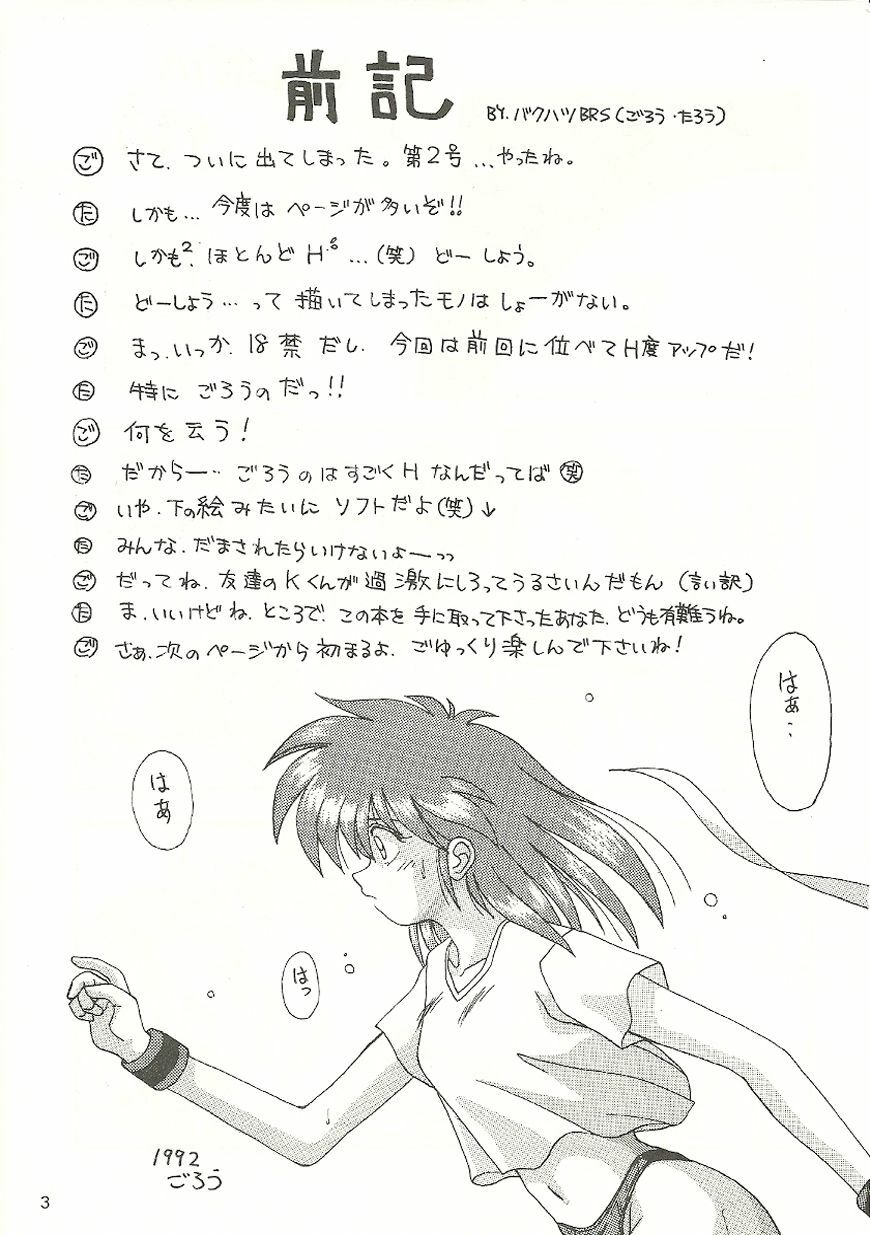 前記
BY.バクハツBRS(ごろう・たろう)
ご さて、ついに出てしまった。第2号…やったね。
た しかも…今度はページが多いぞ!!
ご しかも2.ほとんどH…(笑)どーしよう。
た どーしよう…って描いてしまったモノはしょーがない。
ご まっ、いっか、18禁だし、今回は前回に位べてH度アップだ!
た 特にごろうのだっ!!
ご 何を云う!
た だからー…ごろうのはすごくHなんだってば(笑)
ご いや、下の絵みたいにソフトだよ(笑)↓
た みんな、だまされたらいけないよーっっ
ご だってね、友達のKくんが過激にしろってうるさいんだもん(言い訳)
た ま、いいけどね、ところで、この本を手に取って下さったあなた、どうも有難うね。
ご さぁ、次のページから初まるよ、ごゆっくり楽しんで下さいね!
はぁ…
はぁ
はっ
1992
ごろう
3